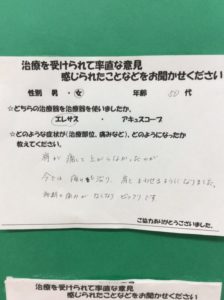 治療を受けられて率直な意見
感じられたことなどをお聞かせください
性別 男・女 年齢 50代
☆どちらの治療器を治療器を使いましたか。
エレサス ・ アキュスコープ
☆どのような症状が(治療部位、痛みなど)、どのようになったか
教えてください。
肩が痛くて上がらなかったのが
今では 痛みもなく、肩もまわせるようになりました。
痛みがなくなりビックリです
ご協力ありがとうございました。
治療を受けられて率直な意見
感じられたことなどをお聞かせください